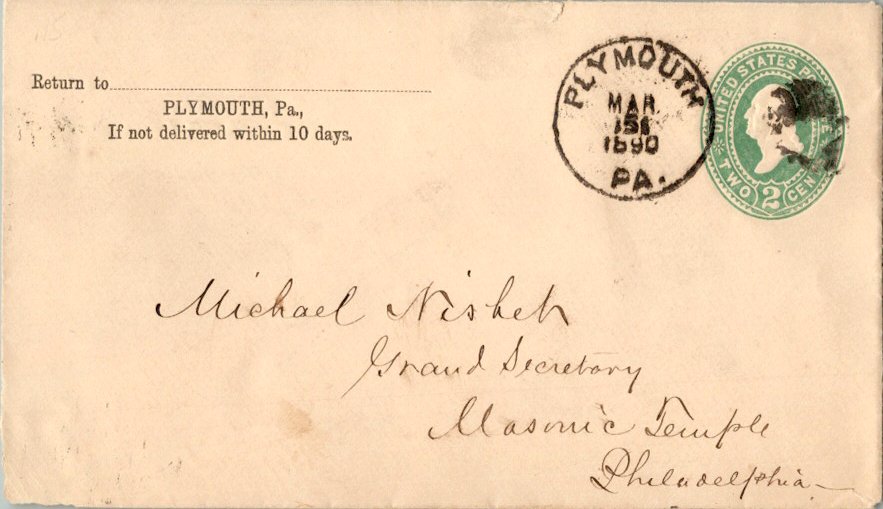 Return to
PLYMOUTH, Pa.,
If not delivered within 10 days.
PLYMOUTH
MAR
1890
PA.
UNITED STATES
TWO 2 CEN
Michael Nisbet
Grand Secretary
Masonic Temple
Philadelphia